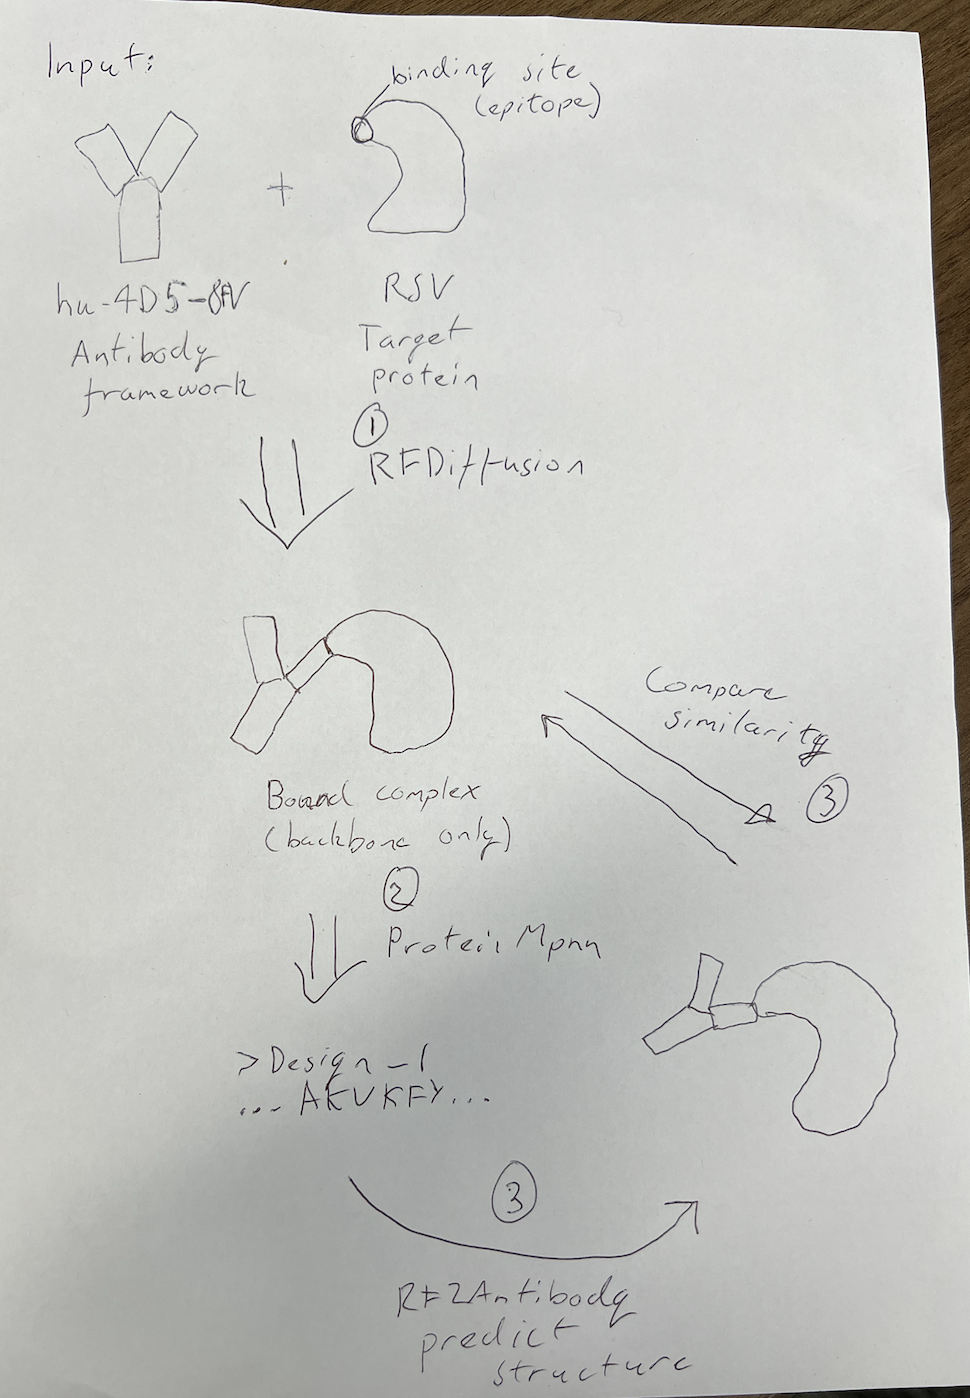 Input:
binding site
(epitope)
+
hu-4D5-8FV
Antibody
framework
RSV
Target
protein
①
RFDiffusion
Compare
similarity
③
Bound complex
(backbone only)
②
Protein Mpnn
>Design_1
... AKVKFY...
③
RF2Antibody
predict
structure